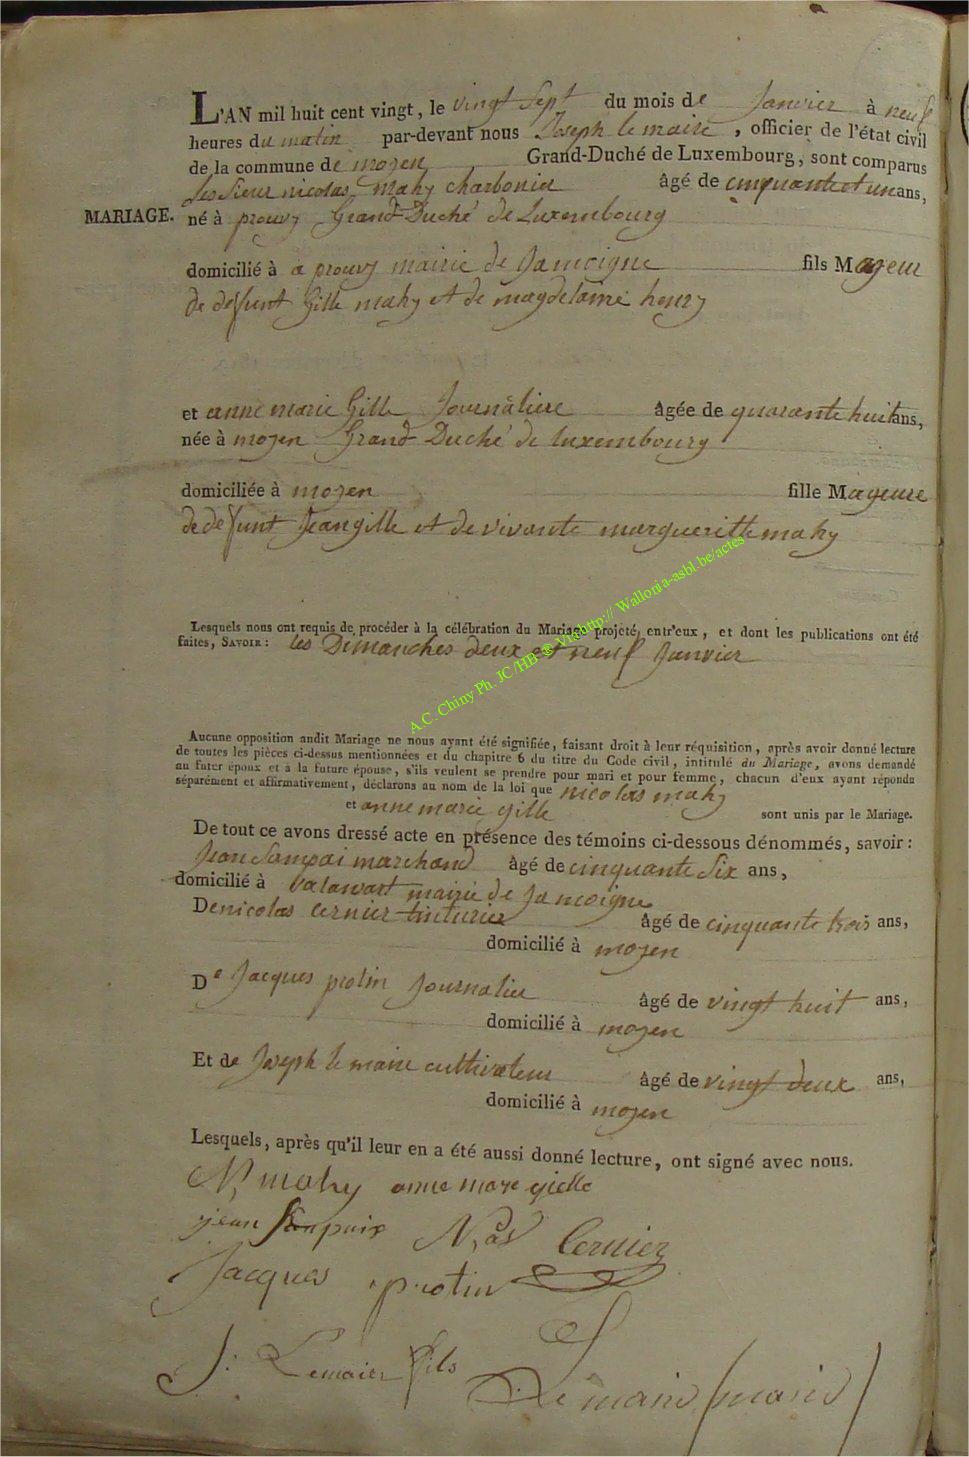 L'AN mil huit cent vingt, le vingt sept du mois de Janvier à neuf
heures du matin par-devant nous Joseph le maire, officier de l'état civil
de la commune de moyen Grand-Duché de Luxembourg, sont comparus
Sieur nicolas mahy charbonier âgé de cinquante et un ans,
MARIAGE. né à prouvy Grand Duché de Luxembourg
domicilié à a prouvy mairie de Jamoigne fils Mageur
de deffunt Gille mahy et de magdelaine henry
et anne marie Gille Journaliere âgée de quarante huit ans,
née à moyen Grand Duché de luxembourg
domiciliée à moyen fille Mageure
de deffunt Jean gille et de vivante margueritte mahy
Lesquels nous ont requis de procéder à la célébration du Mariage projeté entr'eux, et dont les publications ont été
faites, SAVOIR : les Dimanches deux et neuf Janvier
A.C. Chiny Ph. JC/HB © Via http:// Wallonia-asbl.be/actes
Aucune opposition audit Mariage ne nous ayant été signifiée, faisant droit à leur réquisition, après avoir donné lecture
de toutes les pièces ci-dessus mentionnées et du chapitre 6 du titre du Code civil, intitulé du Mariage, avons demandé
au futur époux et à la future épouse, s'ils veulent se prendre pour mari et pour femme, chacun d'eux ayant répondu
séparément et affirmativement, déclarons au nom de la loi que nicolas mahy
et anne marie gille sont unis par le Mariage.
De tout ce avons dressé acte en présence des témoins ci-dessous dénommés, savoir :
Jean Sampai marchand âgé de cinquante Six ans,
domicilié à valansart mairie de Jamoigne
De nicolas cernier tinturier âgé de cinquante trois ans,
domicilié à moyen
De Jacques protin Journalier âgé de vingt huit ans,
domicilié à moyen
Et de Joseph le maire cultivateur âgé de vingt deux ans,
domicilié à moyen
Lesquels, après qu'il leur en a été aussi donné lecture, ont signé avec nous.
N mahy anne mare gielle
jean Sampaix N,as Cernier
Jacques protin
J. Lemaire fils Le maire (maire)